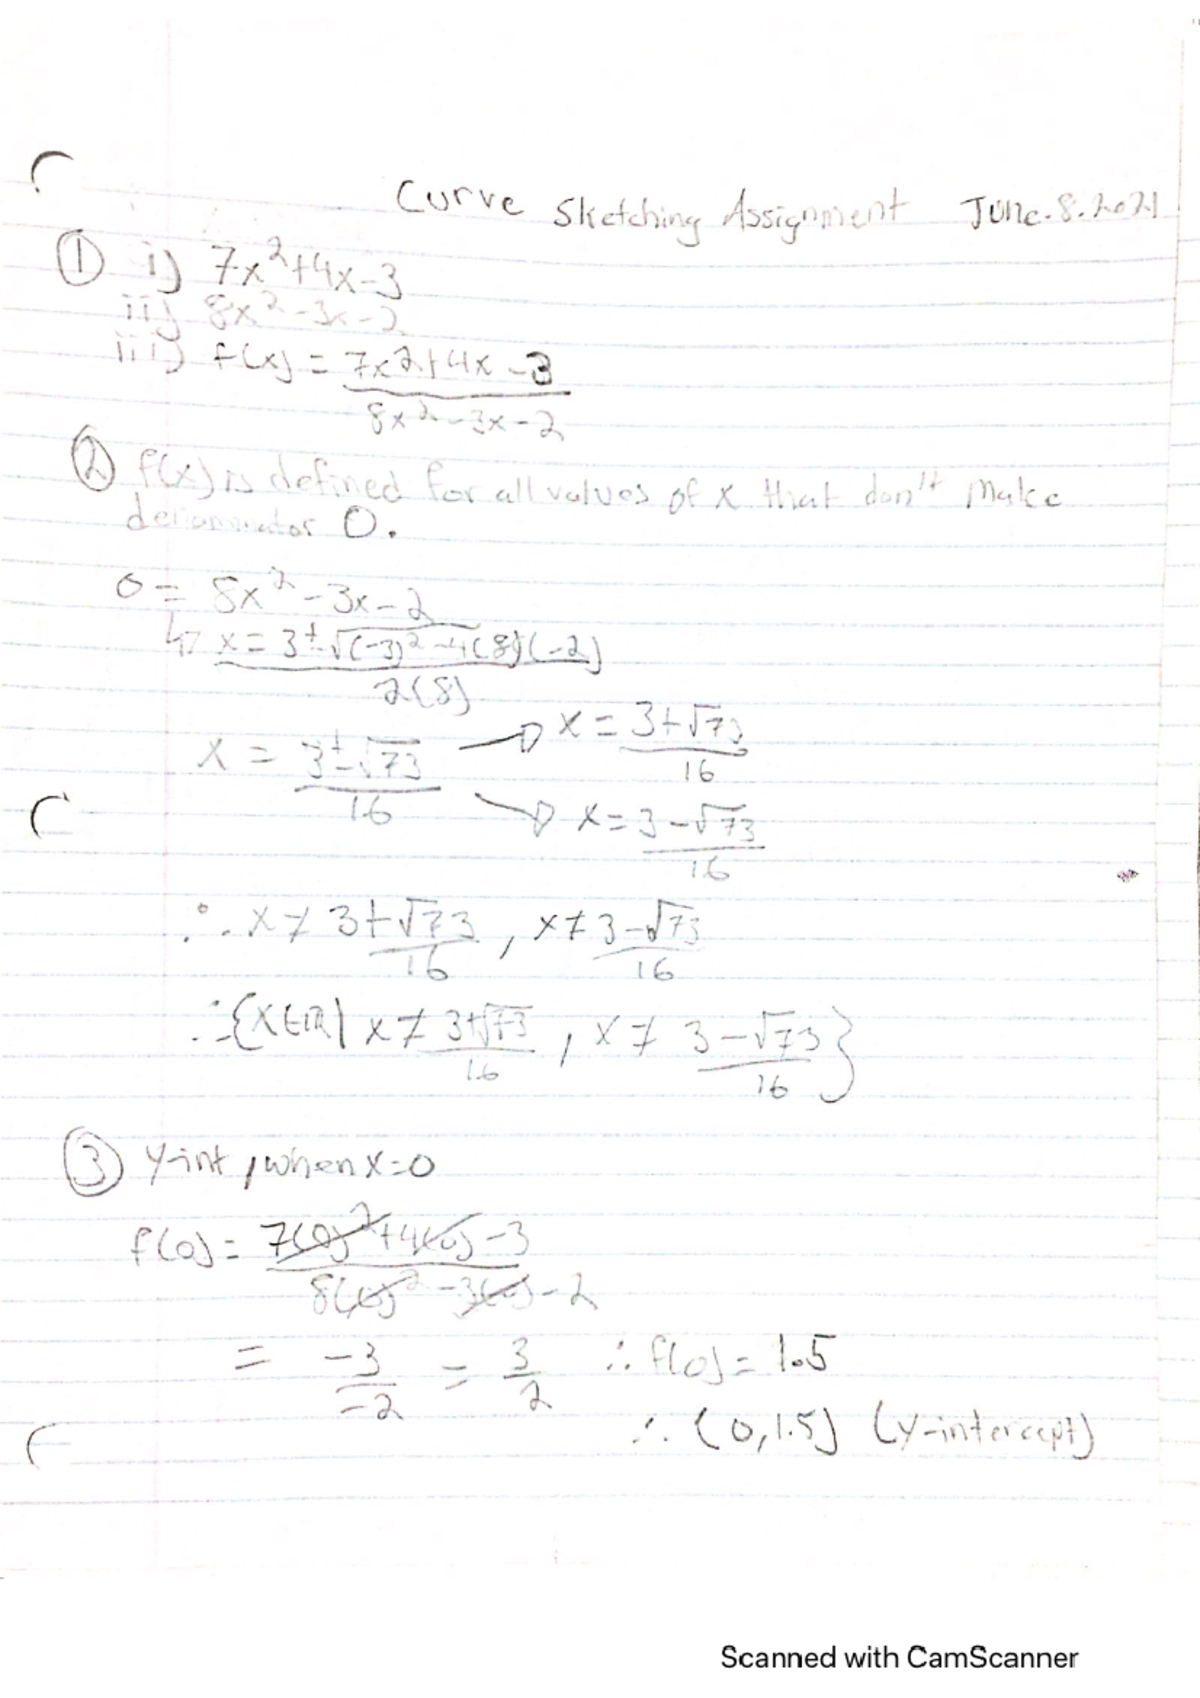 Curve Sketching Assignment June.8.2021
① i) 7x²+4x-3
ii) 8x²-3x-2
iii) f(x) = 7x²+4x-3
8x²-3x-2
② f(x) is defined for all values of x that don't make
denominator 0.
0 = 8x²-3x-2
↳ x = 3±√(-3)²-4(8)(-2)
2(8)
x = 3±√73 → x = 3+√73
16 16
→ x = 3-√73
16
∴ x≠ 3+√73, x≠ 3-√73
16 16
∴{XEIR| x≠ 3+√73, x≠ 3-√73}
16 16
③ y-int, when x=0
f(0) = 7(0)²+4(0)-3
8(0)²-3(0)-2
= -3 = 3 ∴ f(0) = 1.5
-2 2
∴ (0,1.5) (y-intercept)
Scanned with CamScanner